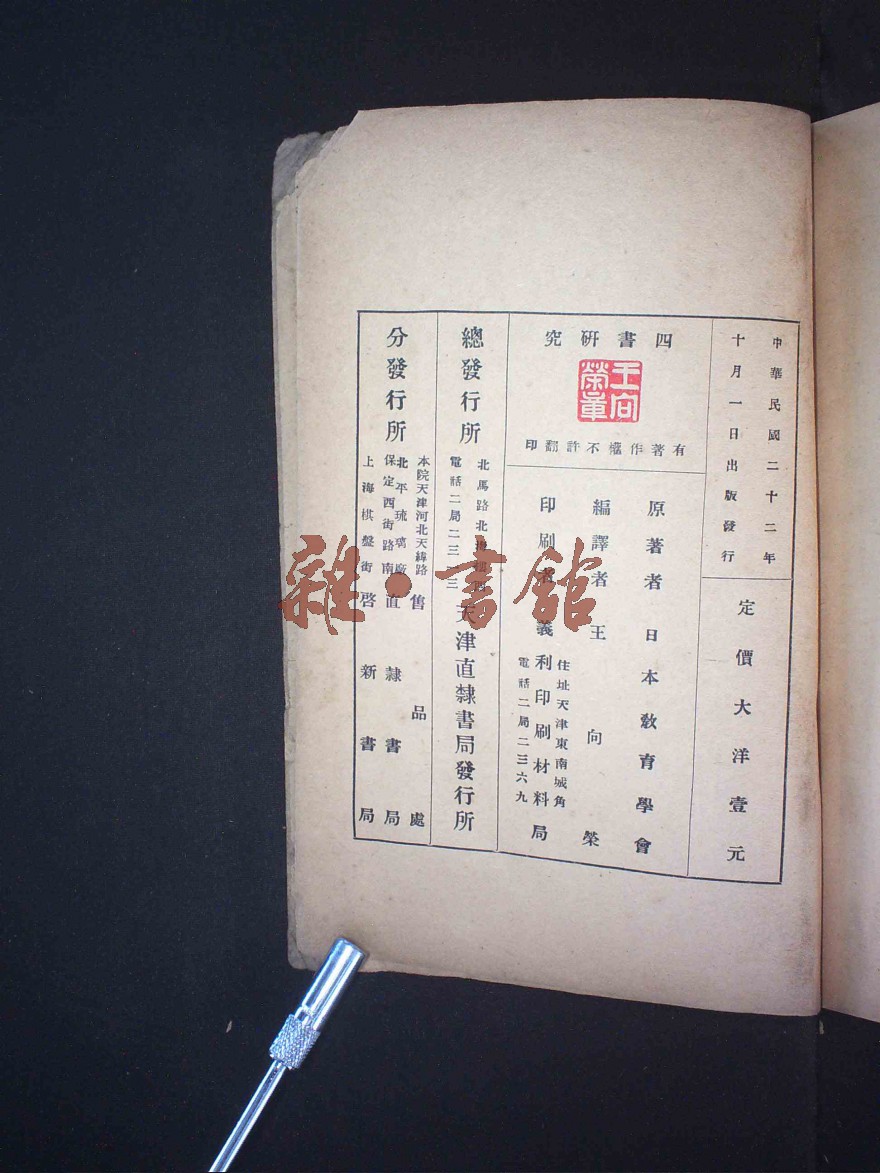 中華民國二十二年
十月一日出版發行
定價大洋壹元
四書研究
王向榮章
有著作權不許翻印
原著者 日本教育學會
編譯者 王向榮
住址天津東南城角
印刷者 義利印刷材料局
電話二局二三六九
總發行所
北馬路北
天津直隸書局發行所
電話二局二三 三
分發行所
本院天津河北天緯路 售品處
北平琉璃廠
保定西街路南 直隸書局
上海棋盤街 啓新書局
雜·書館